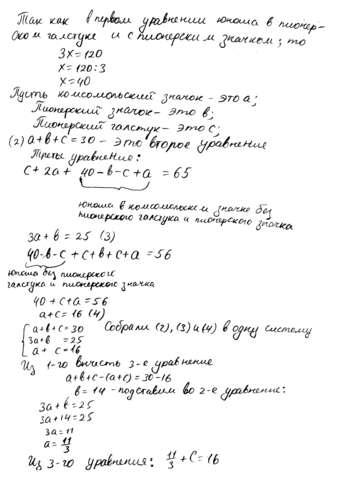 Так как в первом уравнении юноша в пионер-
ском галстуке и с пионерским значком, то
3x = 120
x = 120:3
x = 40
Пусть комсомольский значок - это a;
Пионерский значок - это b;
Пионерский галстук - это c;
(2) a+b+c = 30 - это второе уравнение
Третье уравнение:
c + 2a + 40-b-c+a = 65
юноша в комсомольском значке без
пионерского галстука и пионерского значка
3a + b = 25 (3)
40-b-c + c+b+c+a = 56
юноша без пионерского
галстука и пионерского значка
40 + c+a = 56
a+c = 16 (4)
a+b+c = 30 Собрали (2), (3) и (4) в одну систему
3a+b = 25
a + c = 16
Из 1-го вычесть 3-е уравнение
a+b+c-(a+c) = 30-16
b = 14 - подставим во 2-е уравнение:
3a + b = 25
3a+14 = 25
3a = 11
a = 11/3
Из 3-го уравнения: 11/3 + c = 16